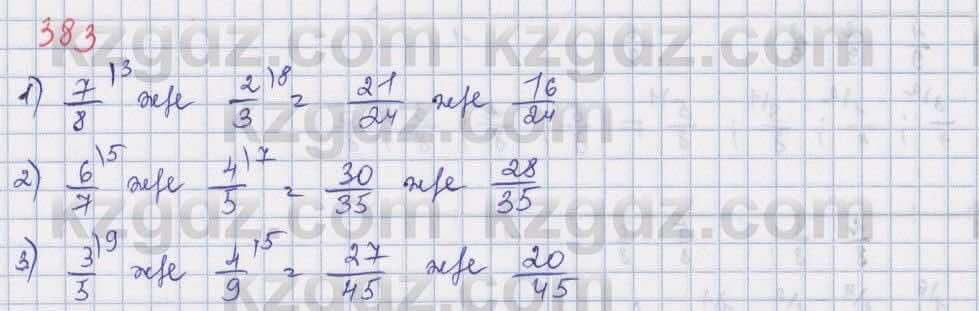 383
1) 7/8 \3 және 2/3 \8 = 21/24 және 16/24
2) 6/7 \5 және 4/5 \7 = 30/35 және 28/35
3) 3/5 \9 және 4/9 \5 = 27/45 және 20/45
kzgdz.com kzgdz.com
kzgdz.com kzgdz.com
kzgdz.com kzgdz.com